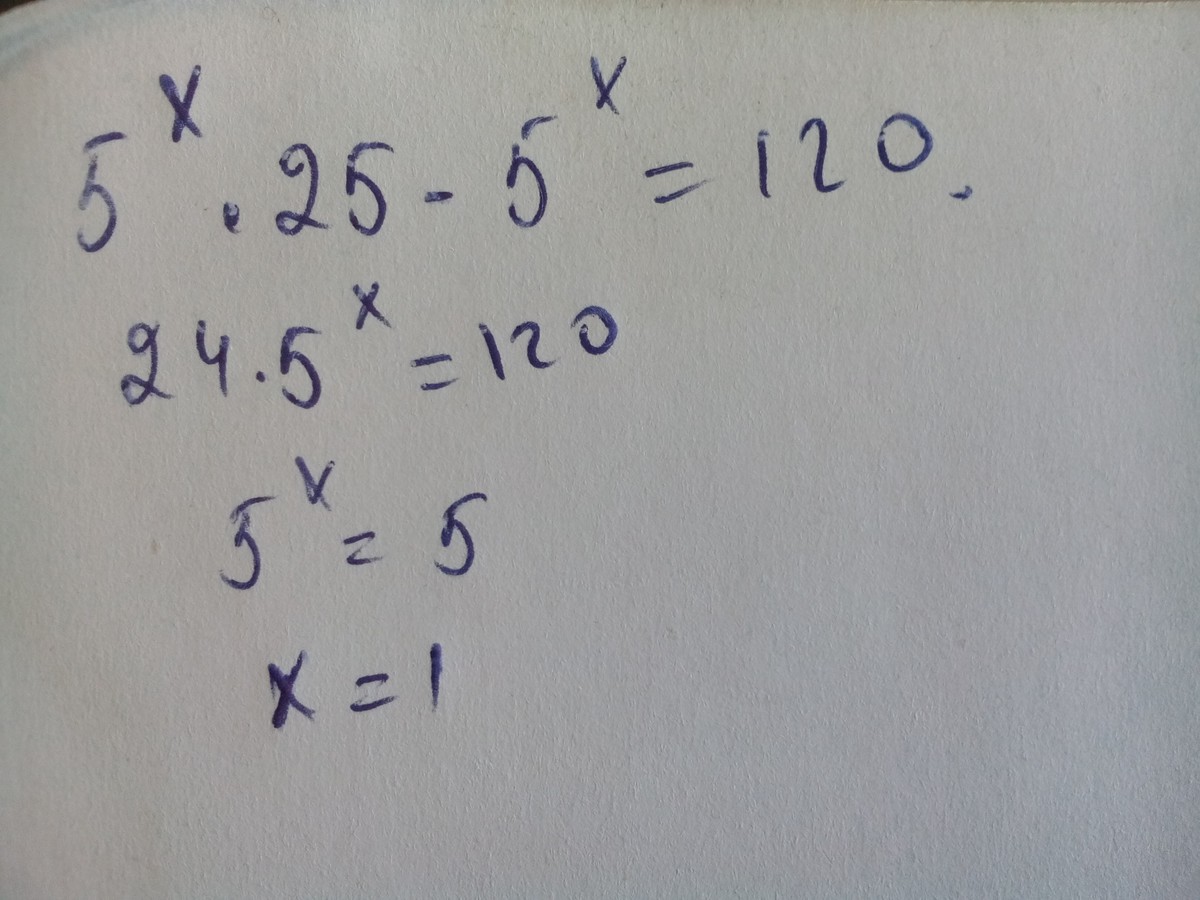 5^x · 25 - 5^x = 120.
24 · 5^x = 120
5^x = 5
x = 1